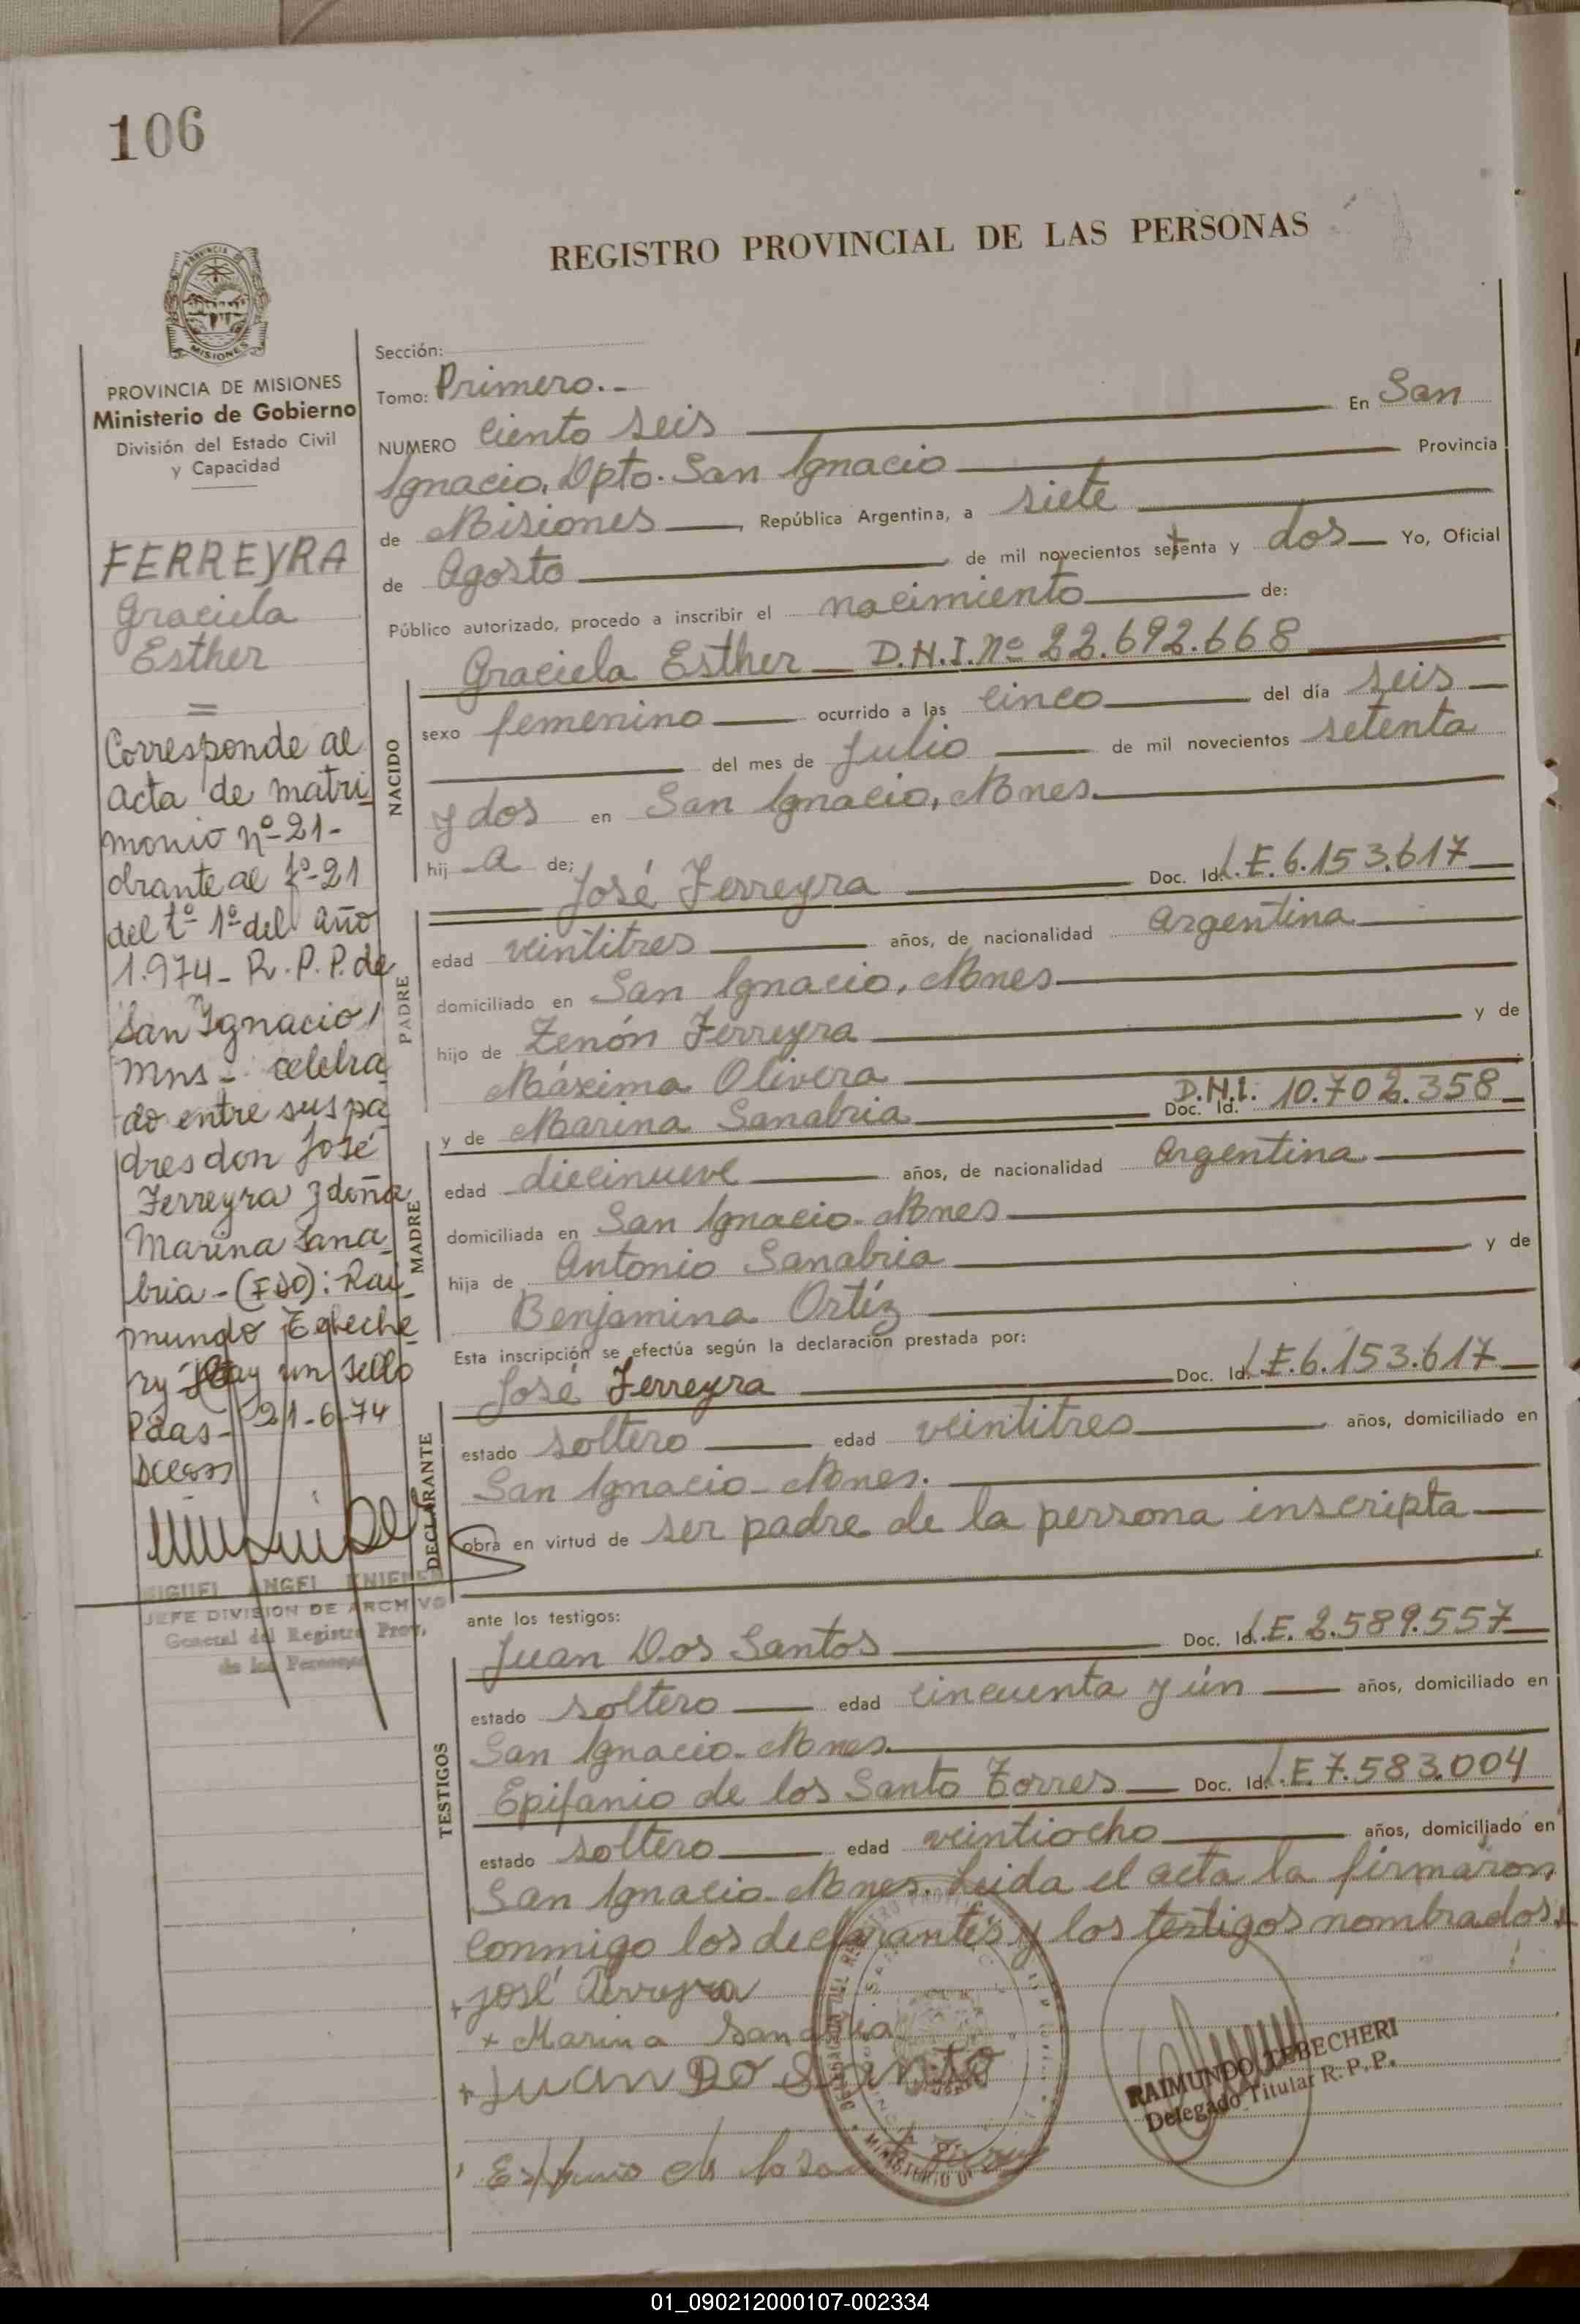 106
REGISTRO PROVINCIAL DE LAS PERSONAS
PROVINCIA DE MISIONES
Ministerio de Gobierno
División del Estado Civil
y Capacidad
FERREYRA
Graciela
Esther
=
Corresponde al
acta de matri
monio nº-21-
obrante al fº-21
del tº 1º del año
1.974- R.P.P. de
San Ignacio,
Mns- celebra
do entre sus pa
dres don José
Ferreyra y doña
Marina Sana
bria-(FDO): Rai
mundo Tebeche
ry Hay un sello
Pdas- 21-6-74
MIGUEL ANGEL KNIELER
JEFE DIVISION DE ARCHIVO
General del Registro Prov.
de las Personas
Sección:
Tomo: Primero.-
NUMERO Ciento seis En San
Ignacio, Dpto. San Ignacio Provincia
de Misiones, República Argentina, a siete
de Agosto de mil novecientos setenta y dos Yo, Oficial
Público autorizado, procedo a inscribir el nacimiento de:
Graciela Esther D.N.I. Nº 22.692.668
NACIDO
sexo femenino ocurrido a las cinco del día seis
del mes de Julio de mil novecientos setenta
y dos en San Ignacio, Mnes.
hij a de: José Ferreyra Doc. Id. L.E. 6.153.617
PADRE
edad veintitres años, de nacionalidad argentina
domiciliado en San Ignacio, Mnes
hijo de Zenón Ferreyra y de
Máxima Olivera
y de Marina Sanabria Doc. Id. D.N.I. 10.702.358
MADRE
edad diecinueve años, de nacionalidad argentina
domiciliada en San Ignacio-Mnes
hija de Antonio Sanabria y de
Benjamina Ortíz
Esta inscripción se efectúa según la declaración prestada por:
José Ferreyra Doc. Id. L.E. 6.153.617
DECLARANTE
estado soltero edad veintitres años, domiciliado en
San Ignacio-Mnes.
obra en virtud de ser padre de la persona inscripta
ante los testigos:
Juan Dos Santos Doc. Id. L.E. 2.589.557
TESTIGOS
estado soltero edad cincuenta y ún años, domiciliado en
San Ignacio-Mnes.
Epifanio de los Santo Torres Doc. Id. L.E. 7.583.004
estado soltero edad veintiocho años, domiciliado en
San Ignacio-Mnes. Leida el acta la firmaron
conmigo los declarantes y los testigos nombrados.
José Ferreyra
Marina Sanabria
Juan DO Santo
RAIMUNDO TEBECHERI
Delegado Titular R.P.P.
01_090212000107-002334